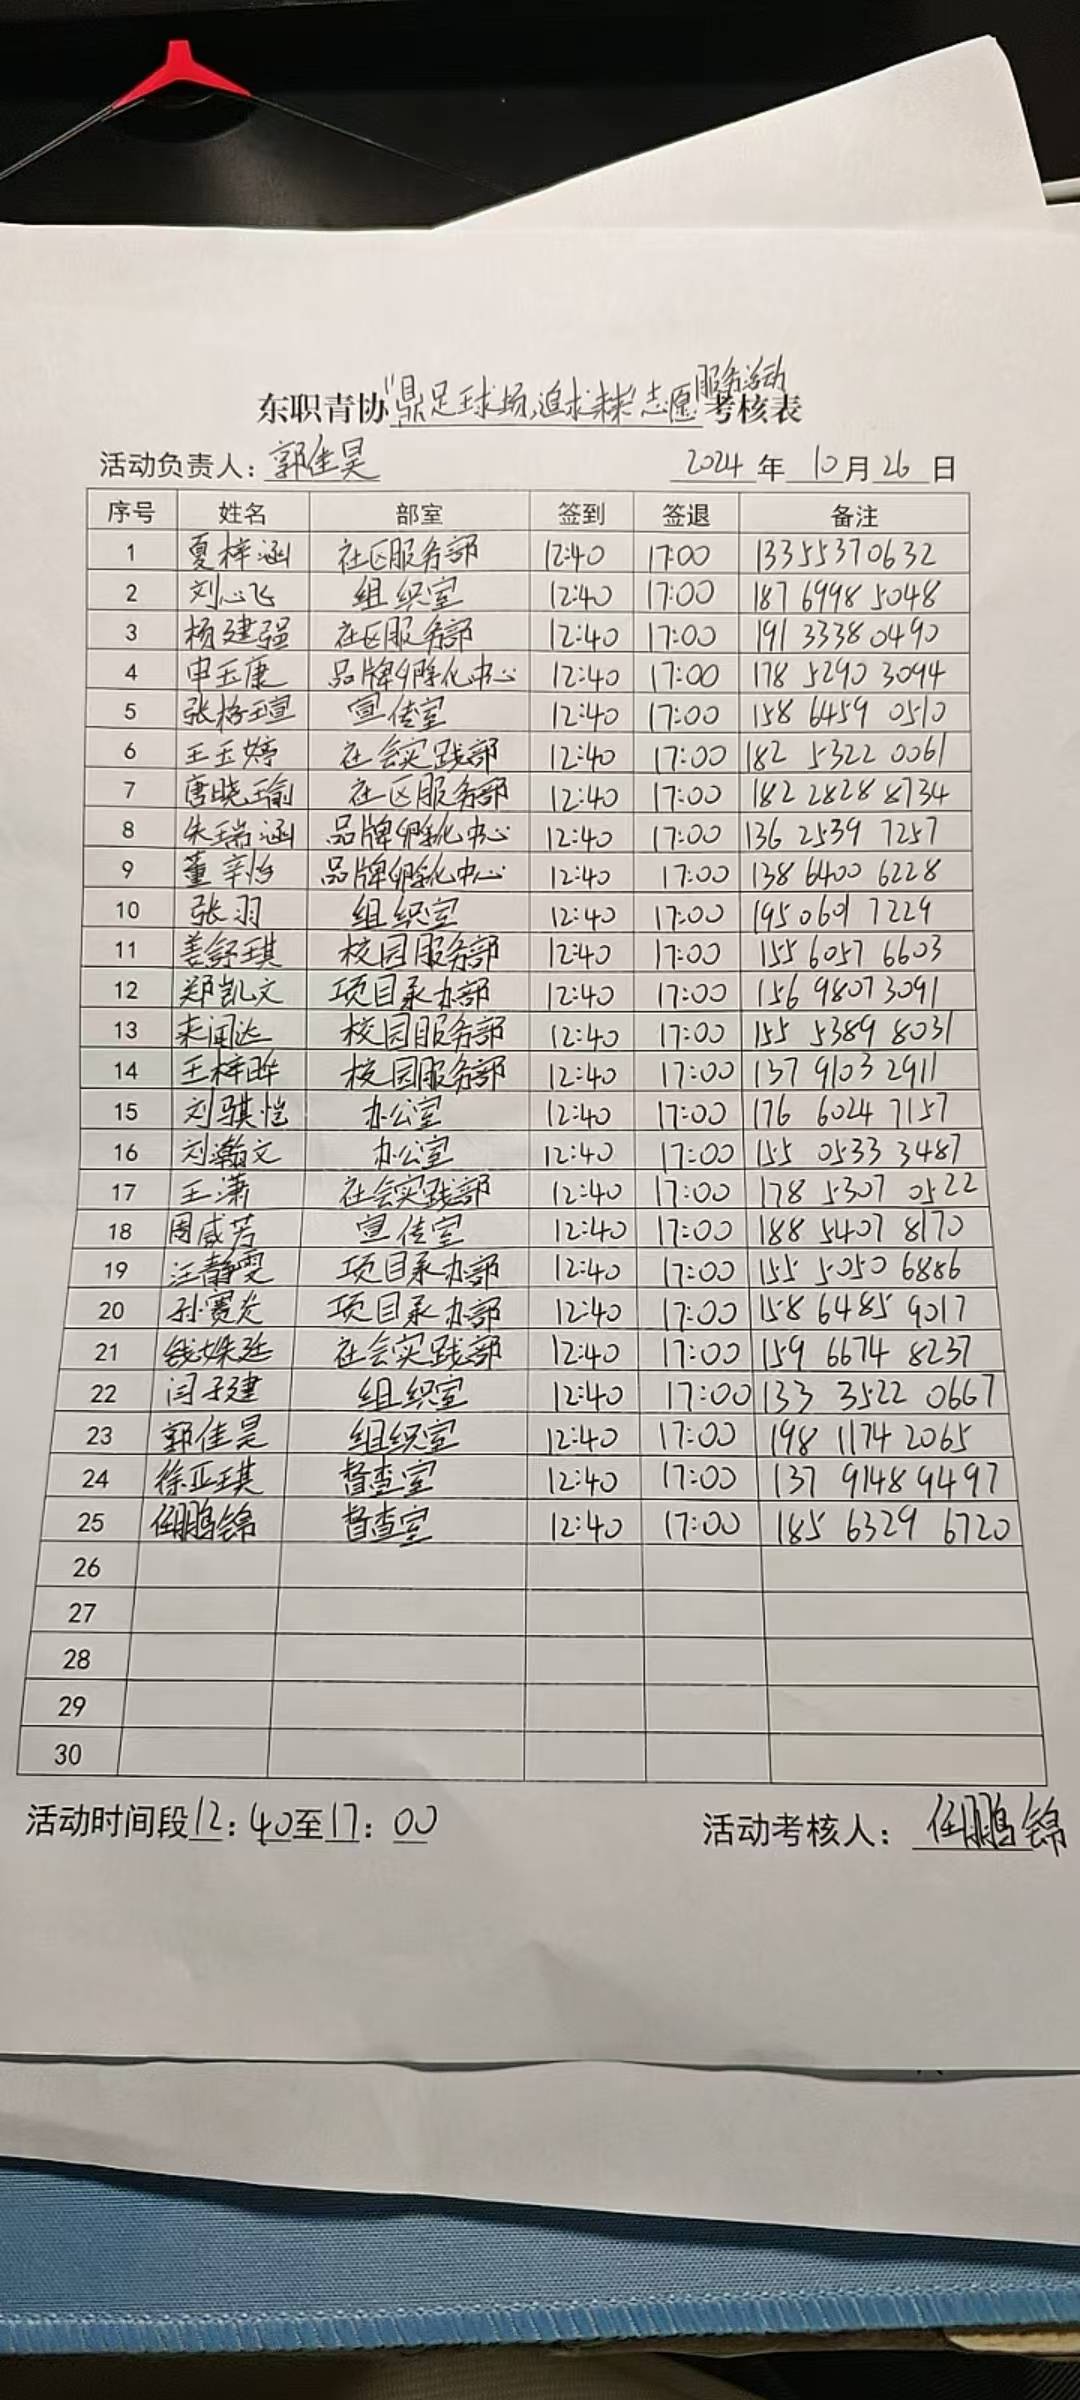 东职青协"鼎足球场,追求未来"志愿服务活动考核表
活动负责人：郭佳昊 2024年10月26日
序号 姓名 部室 签到 签退 备注
1 夏梓涵 社区服务部 12:40 17:00 13355370632
2 刘心飞 组织室 12:40 17:00 187 6998 5048
3 杨建强 社区服务部 12:40 17:00 191 3338 0490
4 申玉康 品牌孵化中心 12:40 17:00 178 5290 3094
5 张格瑄 宣传室 12:40 17:00 158 6459 0510
6 王玉婷 社会实践部 12:40 17:00 182 5322 0061
7 唐晓瑜 社区服务部 12:40 17:00 182 2828 8734
8 朱瑞涵 品牌孵化中心 12:40 17:00 136 2539 7257
9 董辛怡 品牌孵化中心 12:40 17:00 138 6400 6228
10 张羽 组织室 12:40 17:00 195 0601 7229
11 姜舒琪 校园服务部 12:40 17:00 155 6057 6603
12 郑凯文 项目承办部 12:40 17:00 156 9807 3091
13 来闻达 校园服务部 12:40 17:00 155 5389 8031
14 王梓晔 校园服务部 12:40 17:00 137 9103 2911
15 刘骐恺 办公室 12:40 17:00 176 6024 7157
16 刘瀚文 办公室 12:40 17:00 155 0533 3487
17 王潇 社会实践部 12:40 17:00 178 5307 0522
18 周咸芳 宣传室 12:40 17:00 188 5407 8170
19 汪静雯 项目承办部 12:40 17:00 155 5050 6886
20 孙赛炎 项目承办部 12:40 17:00 158 6485 9017
21 钱姝廷 社会实践部 12:40 17:00 159 6674 8237
22 闫子建 组织室 12:40 17:00 133 3522 0667
23 郭佳昊 组织室 12:40 17:00 198 1174 2065
24 徐亚琪 督查室 12:40 17:00 137 9148 9497
25 任鹏锦 督查室 12:40 17:00 185 6329 6720
26
27
28
29
30
活动时间段12：40至17：00 活动考核人：任鹏锦